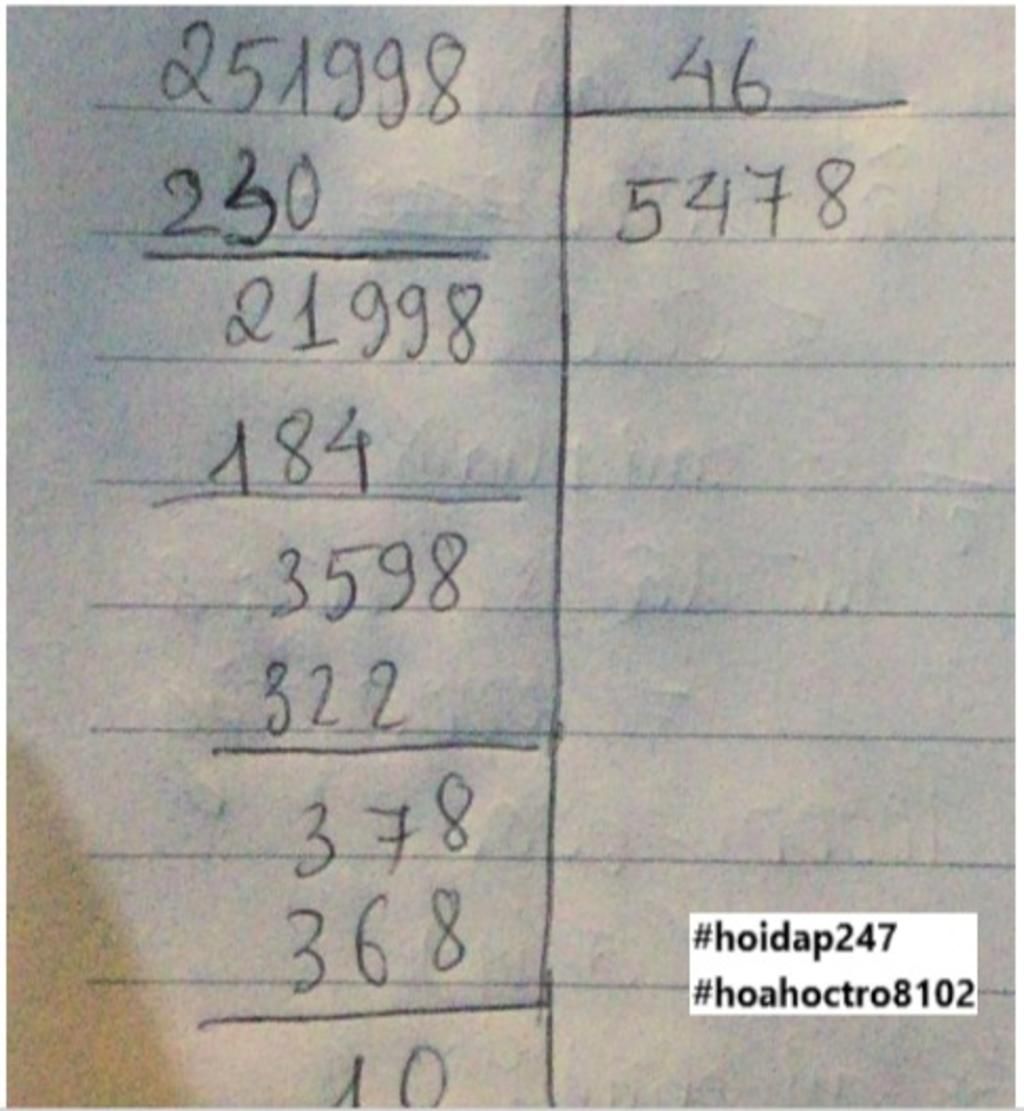 251998 46
230 5478
21998
184
3598
322
378
368
10
#hoidap247
#hoahoctro8102